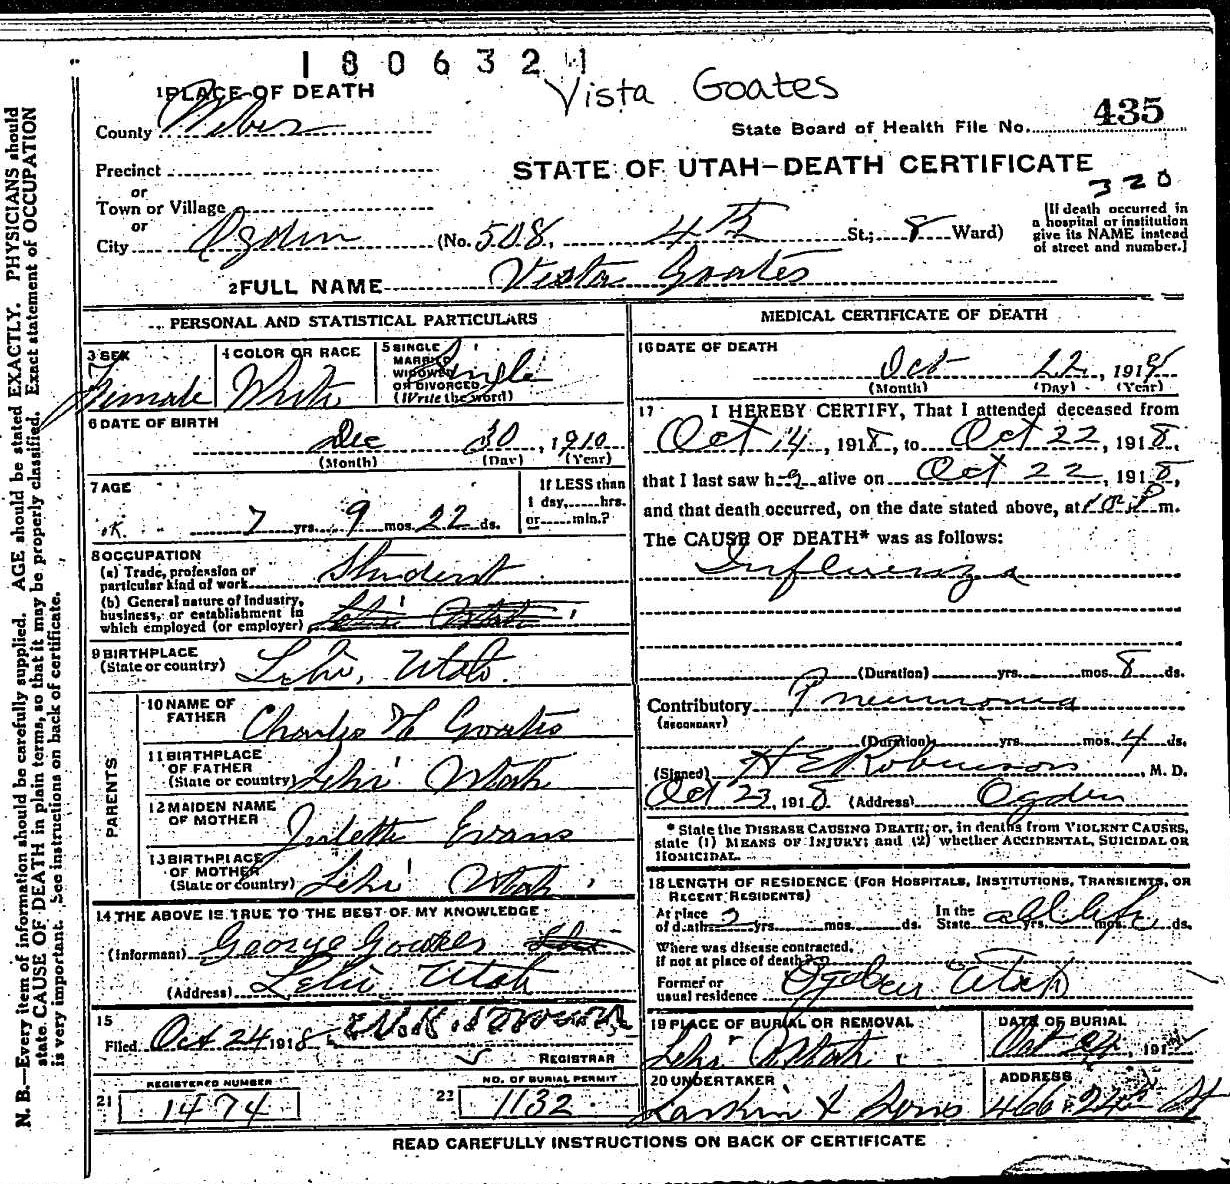 1806321
Vista Goates
1 PLACE OF DEATH
County Weber
State Board of Health File No. 435
Precinct
STATE OF UTAH—DEATH CERTIFICATE
320
or
Town or Village
or
City Ogden (No. 508. 4th St.; 8 Ward)
[If death occurred in
a hospital or institution
give its NAME instead
of street and number.]
2 FULL NAME Vista Goates
PERSONAL AND STATISTICAL PARTICULARS
3 SEX Female
4 COLOR OR RACE White
5 SINGLE
MARRIED
WIDOWED
OR DIVORCED
(Write the word) Single
6 DATE OF BIRTH
Dec 30, 1910
(Month) (Day) (Year)
7 AGE
OK. 7 yrs. 9 mos. 22 ds.
If LESS than
1 day,......hrs.
or......min.?
8 OCCUPATION
(a) Trade, profession or
particular kind of work Student
(b) General nature of industry,
business, or establishment in
which employed (or employer) Lehi Utah
9 BIRTHPLACE
(State or country) Lehi, Utah.
PARENTS
10 NAME OF
FATHER Charles H Goates
11 BIRTHPLACE
OF FATHER
(State or country) Lehi Utah
12 MAIDEN NAME
OF MOTHER Juletta Evans
13 BIRTHPLACE
OF MOTHER
(State or country) Lehi Utah
14 THE ABOVE IS TRUE TO THE BEST OF MY KNOWLEDGE
(Informant) George Goates
(Address) Lehi Utah
15
Filed Oct 24 1918
REGISTRAR
REGISTERED NUMBER
21 1474
NO. OF BURIAL PERMIT
22 1132
MEDICAL CERTIFICATE OF DEATH
16 DATE OF DEATH
Oct 22, 191
(Month) (Day) (Year)
17 I HEREBY CERTIFY, That I attended deceased from
Oct 14, 1918, to Oct 22, 1918,
that I last saw h alive on Oct 22, 1918,
and that death occurred, on the date stated above, at m.
The CAUSE OF DEATH* was as follows:
Influenza
(Duration) yrs. mos. 8 ds.
Contributory Pneumonia
(SECONDARY)
(Duration) yrs. mos. 4 ds.
(Signed) H E Robinson, M. D.
Oct 23, 1918 (Address) Ogden
* State the DISEASE CAUSING DEATH; or, in deaths from VIOLENT CAUSES,
state (1) MEANS OF INJURY; and (2) whether ACCIDENTAL, SUICIDAL OR
HOMICIDAL.
18 LENGTH OF RESIDENCE (FOR HOSPITALS, INSTITUTIONS, TRANSIENTS, OR
RECENT RESIDENTS)
At place
of death 2 yrs. mos. ds.
In the
State all life yrs. mos. ds.
Where was disease contracted,
if not at place of death?
Former or
usual residence Ogden Utah
19 PLACE OF BURIAL OR REMOVAL
Lehi Utah
DATE OF BURIAL
Oct 24, 191
20 UNDERTAKER
Larkin & Sons
ADDRESS
466 24th St
READ CAREFULLY INSTRUCTIONS ON BACK OF CERTIFICATE
N. B.—Every item of information should be carefully supplied. AGE should be stated EXACTLY. PHYSICIANS should
state CAUSE OF DEATH in plain terms, so that it may be properly classified. Exact statement of OCCUPATION
is very important. See instructions on back of certificate.